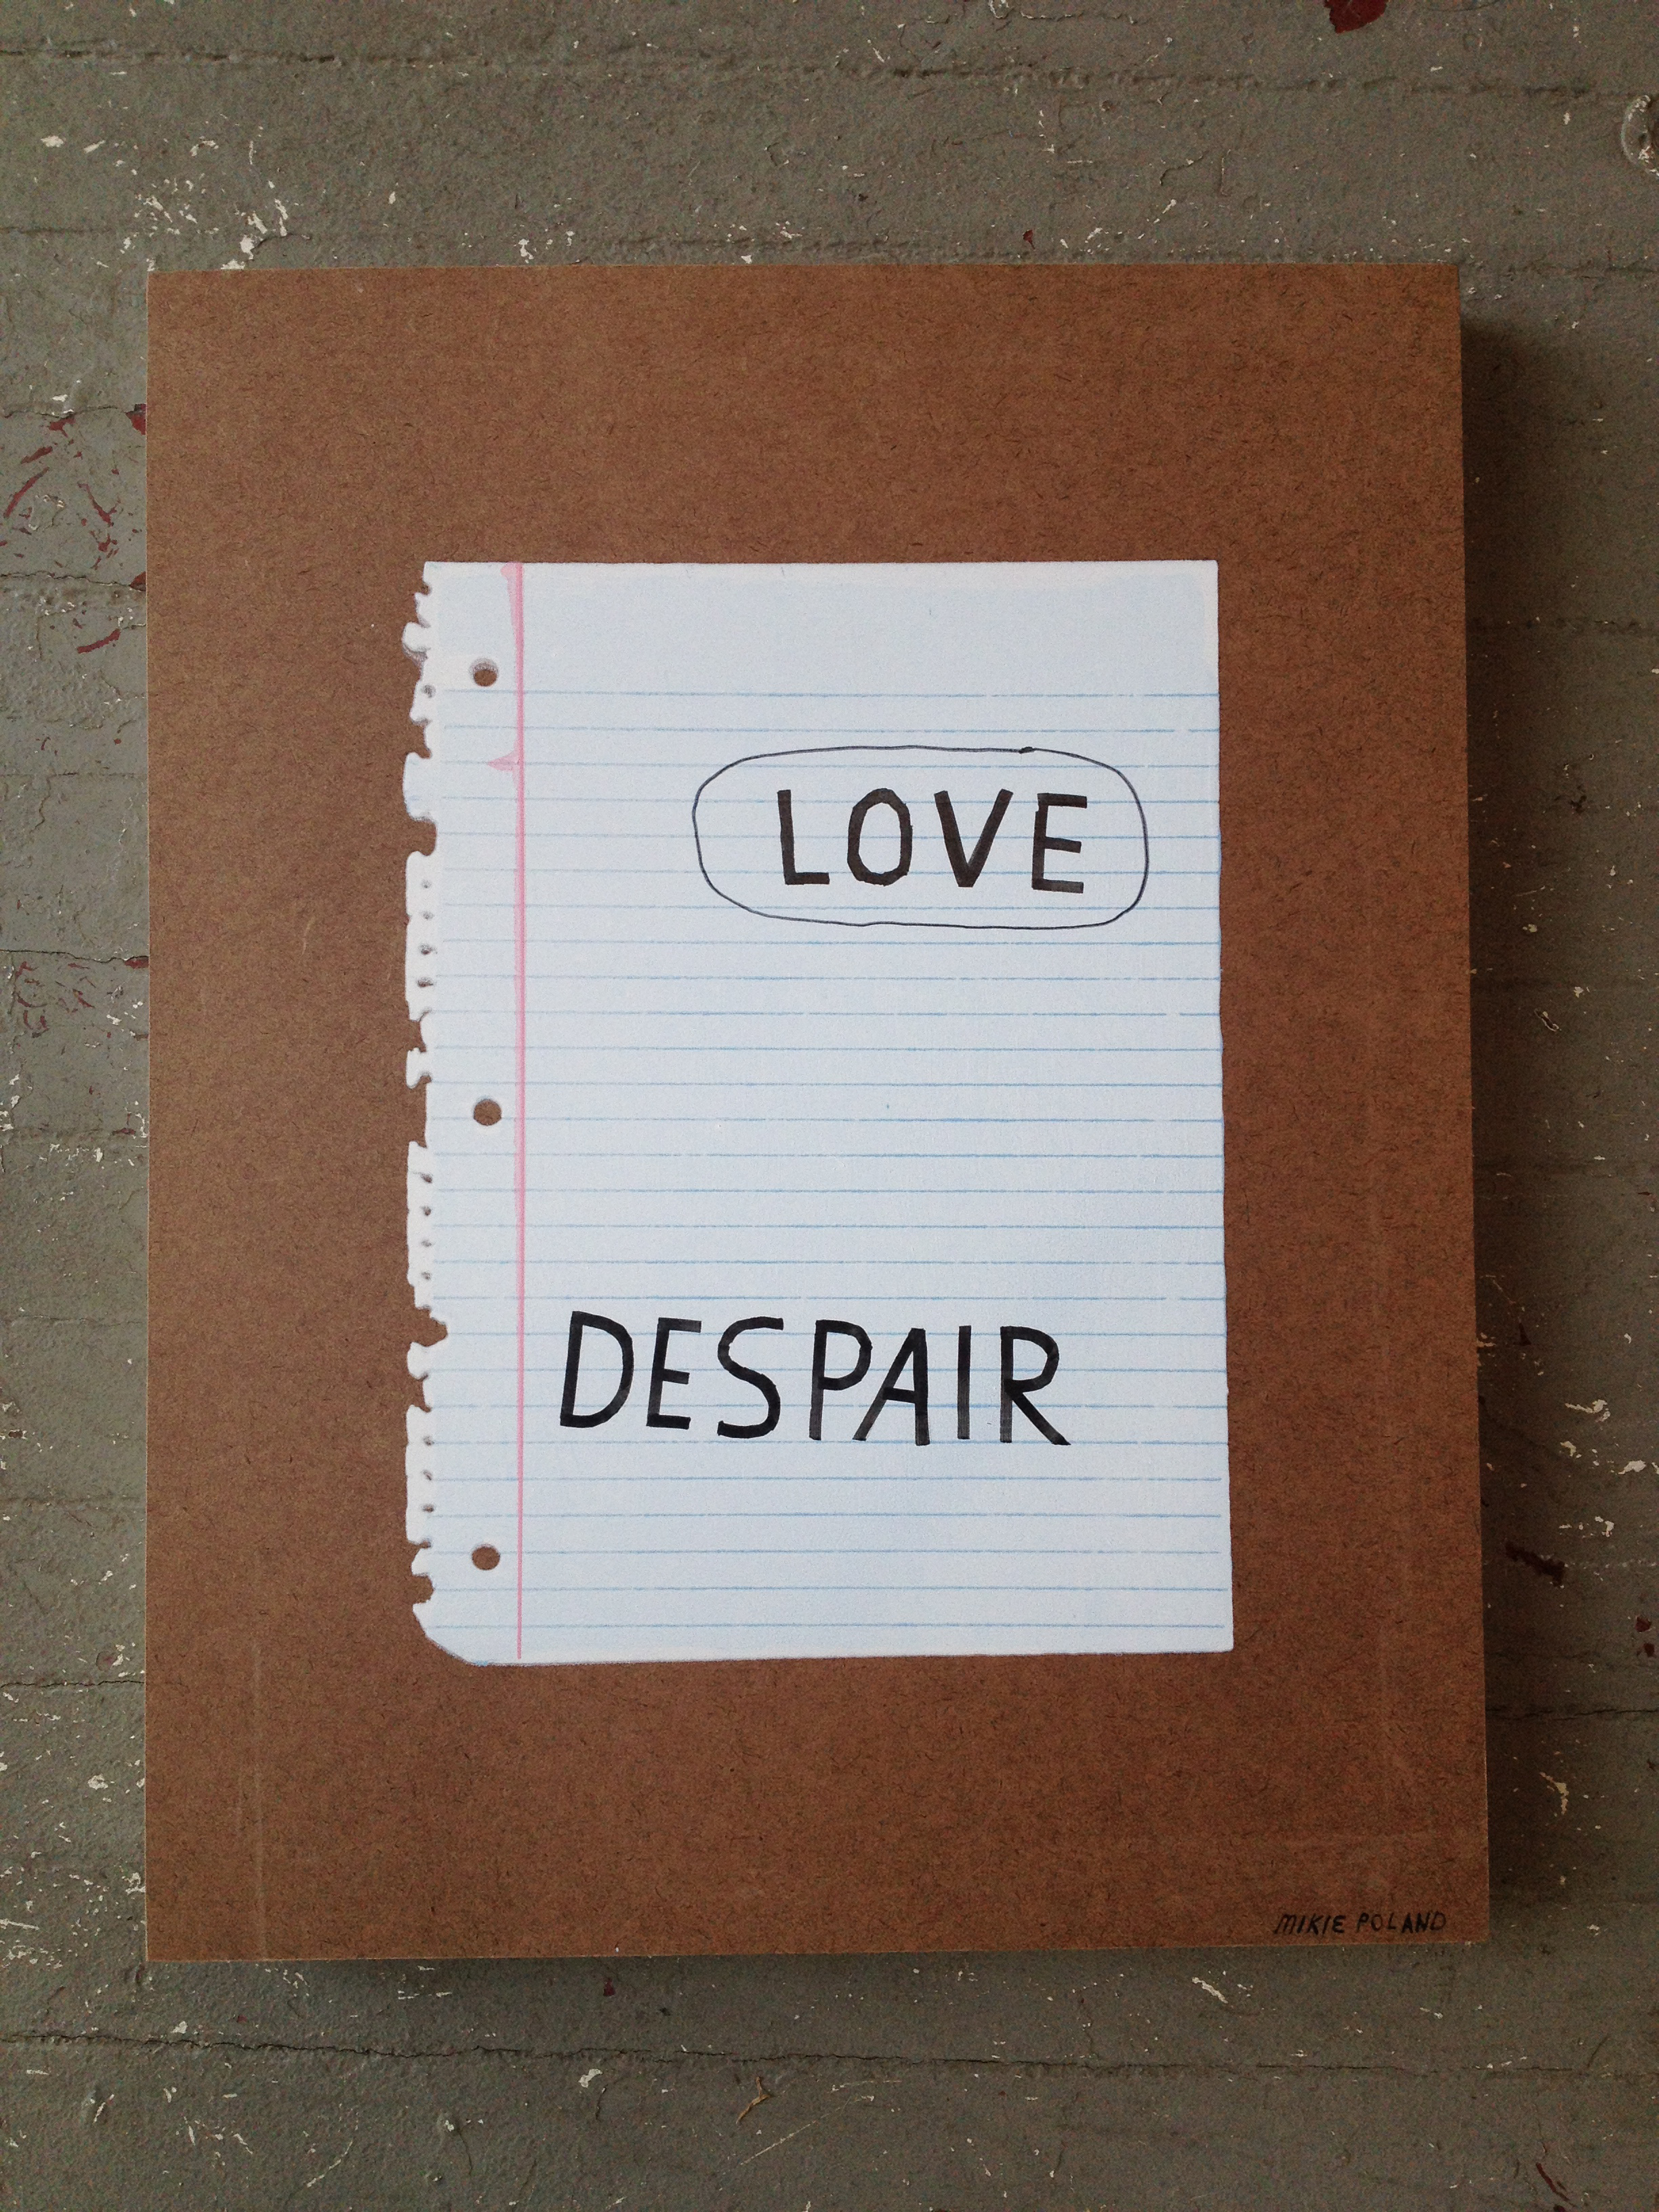 LOVE
DESPAIR
MIKIE POLAND